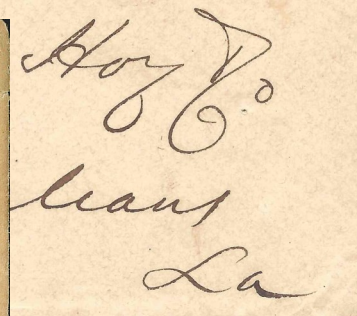 Hoy Co
leans
La